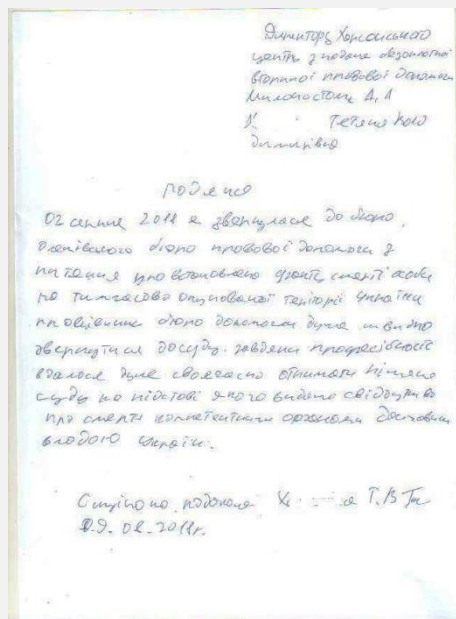 Директору Херсонського
центру з надання безоплотної
вторинної правової допомоги
Тетяна
подяка
02 серпня 2018 я звернулася до бюро,
бюро правової допомоги з
питання про встановлено факту смерті особи
на тимчасово окупованої територіі України
бюро допомогли дуже швидко
звернутися до суду. завдяки професійності
вдалося дуже своєчасно отримати рішення
суду на підставі якого видано свідоцтво
про смерть компетентним органом державною
владою України.
Т.В
09.08.2018г.